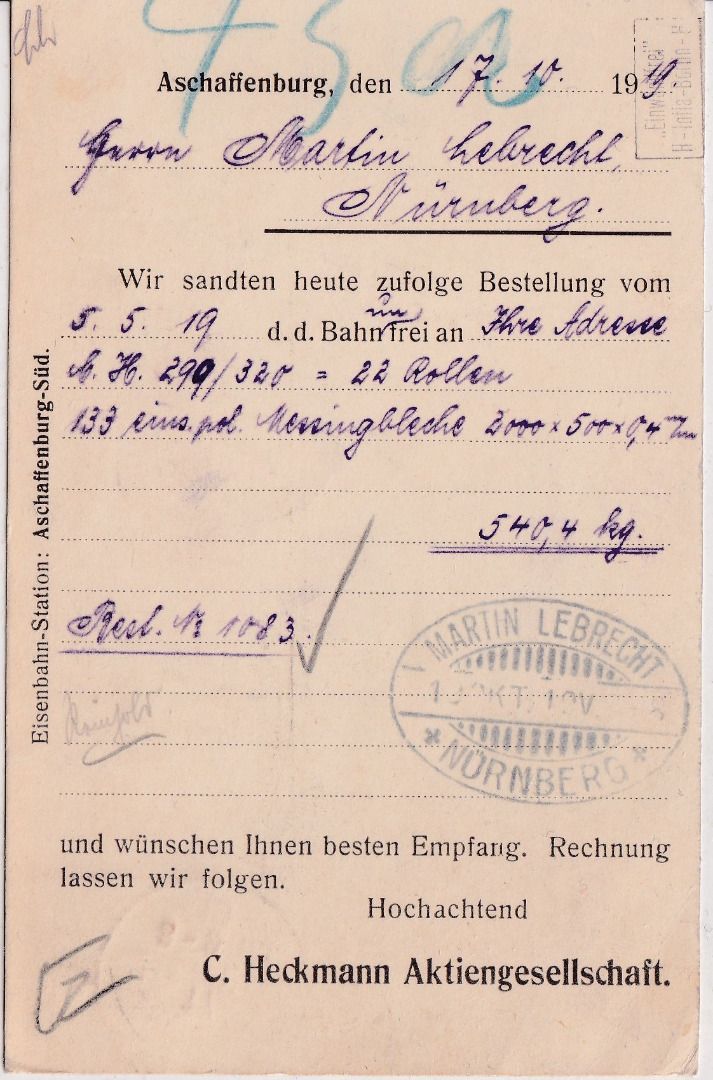 Aschaffenburg, den 17. 10. 1919.
Herrn Martin Lebrecht,
Nürnberg.
Wir sandten heute zufolge Bestellung vom
5. 5. 19 d. d. Bahn unfrei an Ihre Adresse
M. H. 299/320 = 22 Rollen
133 eins. pol. Messingbleche 2000 x 500 x 0,4 mm
540,4 kg.
Best. № 1083.
Eisenbahn-Station: Aschaffenburg-Süd.
MARTIN LEBRECHT
NÜRNBERG
und wünschen Ihnen besten Empfang. Rechnung
lassen wir folgen.
Hochachtend
C. Heckmann Aktiengesellschaft.